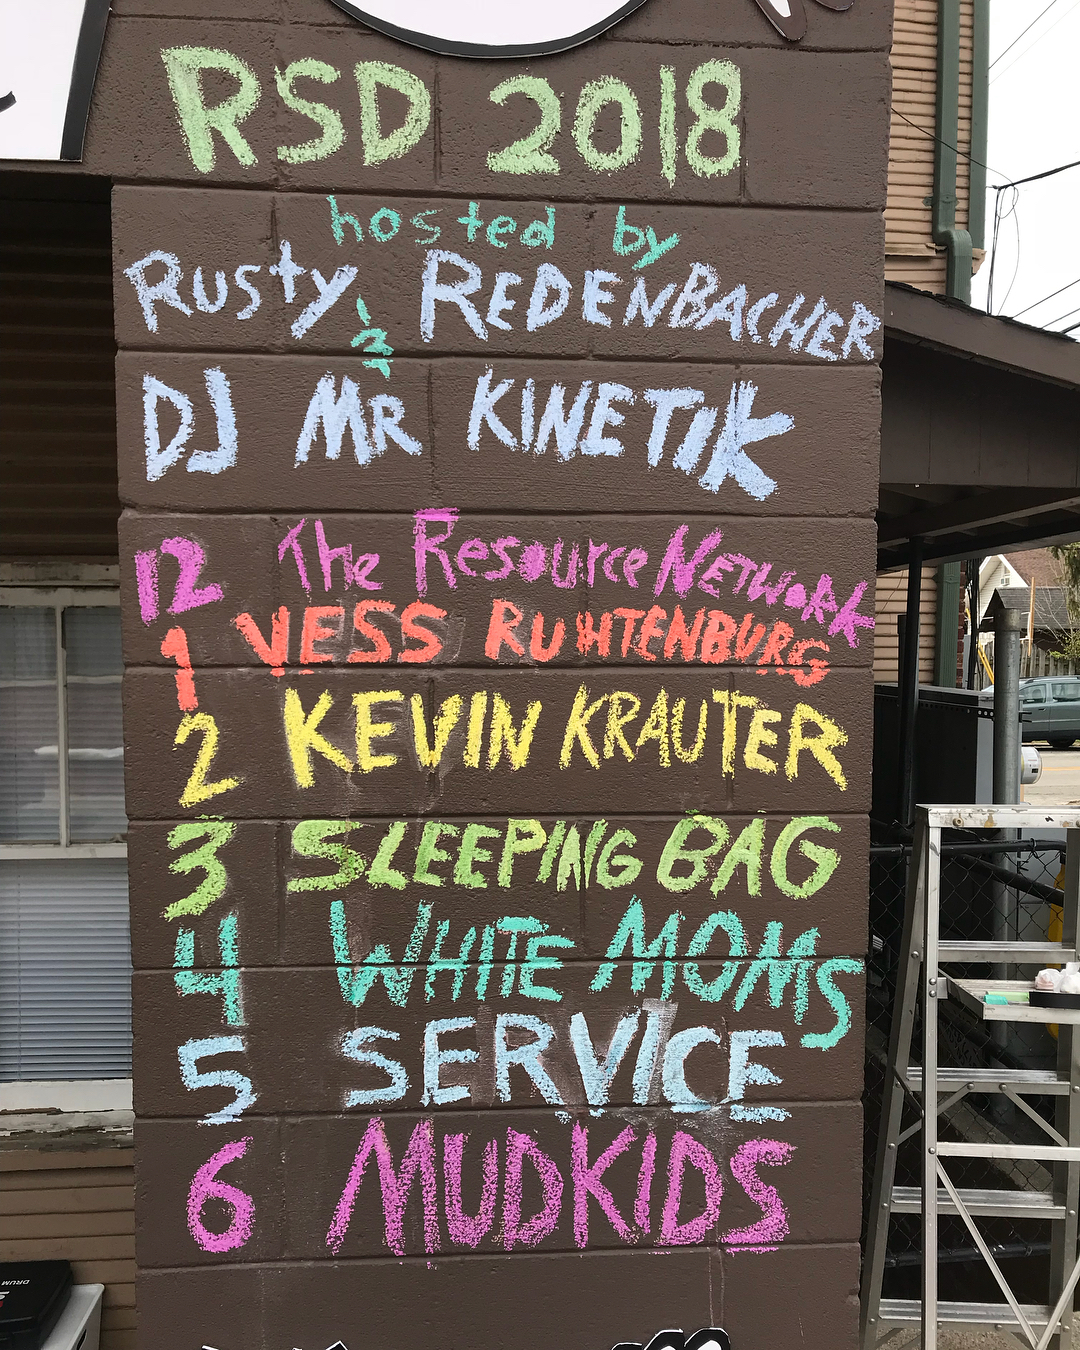 RSD 2018
hosted by
Rusty REDENBACHER
&
DJ MR KINETIK
12 The Resource NETWORK
1 VESS RUHTENBURG
2 KEVIN KRAUTER
3 SLEEPING BAG
4 WHITE MOMS
5 SERVICE
6 MUDKIDS
DRUM